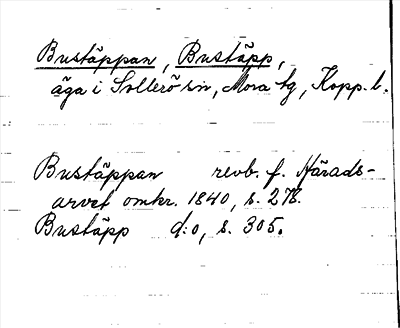 Bustäppan, Bustäpp,
äga i Sollerö sn, Mora tg, Kopp. l.
Bustäppan revb. f. Härads-
arvet omkr. 1840, s. 278.
Bustäpp d:o, s. 305.